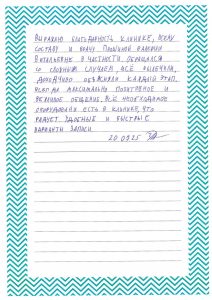 Выражаю благодарность клинике, всему
составу и врачу Пошиной Валерии
Витальевне в частности. Обращался
со сложным случаем, всё вылечили,
доходчиво объясняли каждый этап,
всегда максимально позитивное и
вежливое общение. Всё необходимое
оборудование есть в клинике, что
радует. Удобные и быстрые
варианты записи
20.09.25